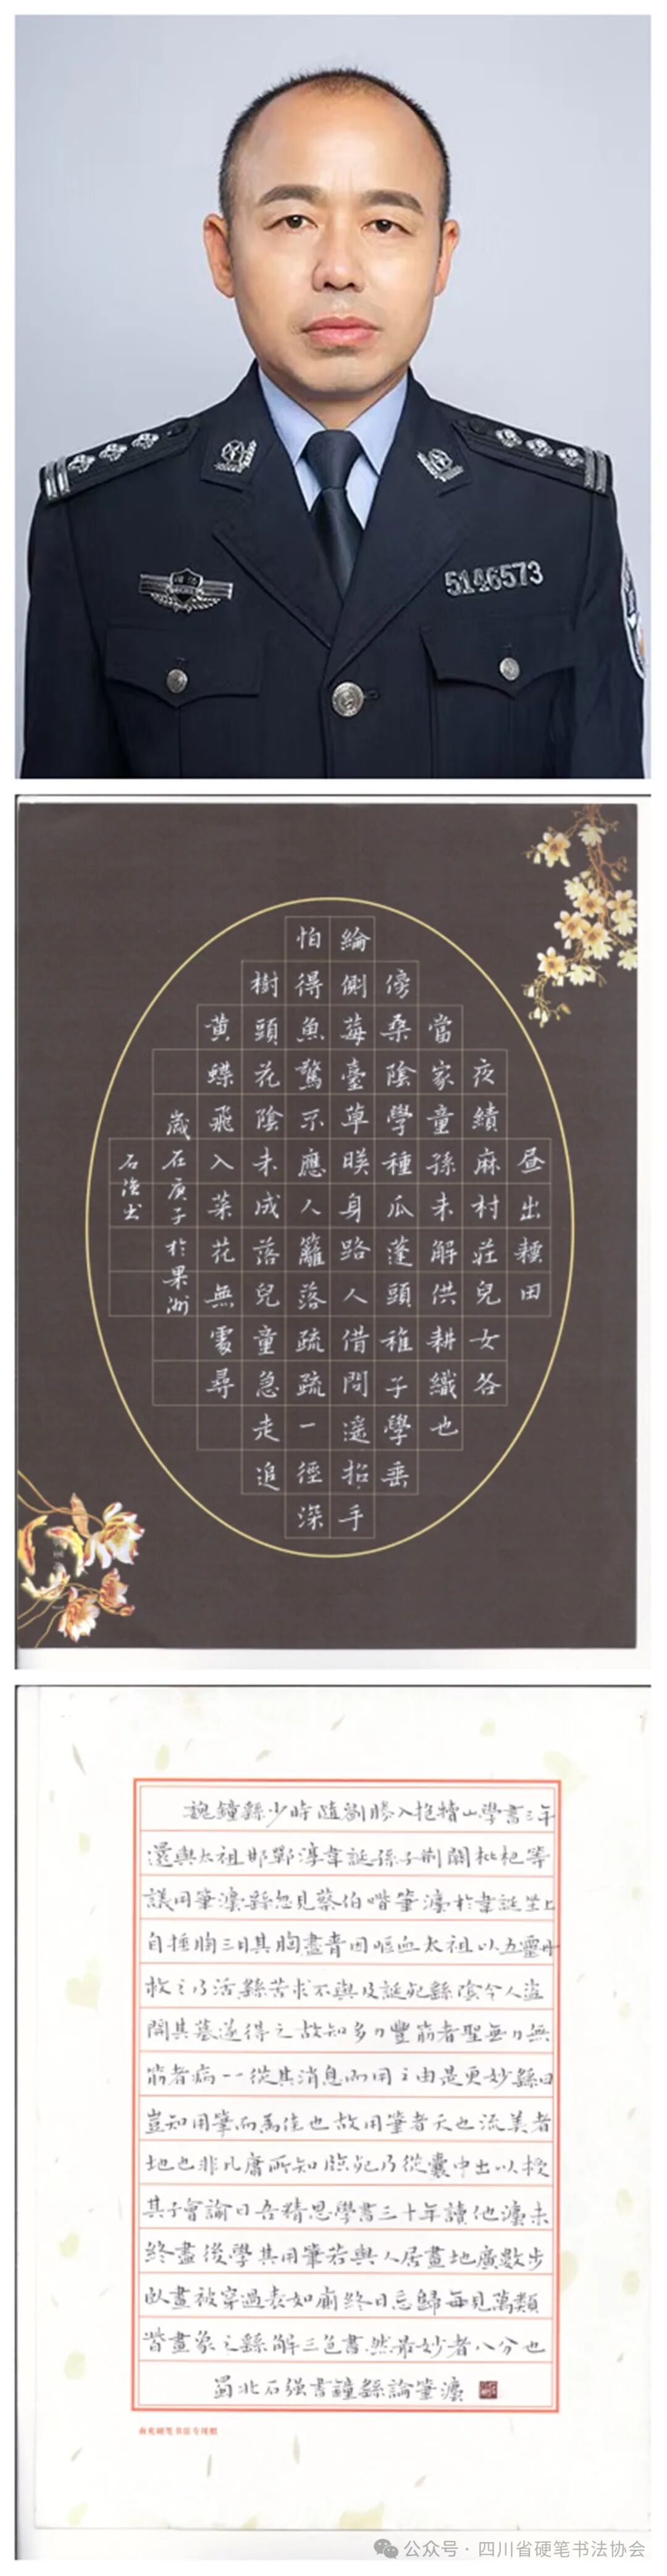 5146573
昼出田
夜績麻村莊兒女各
當家童孫未解供耕織也
傍桑陰學種瓜蓬頭稚子學垂
綸側莓臺草映身路人借問遥招手
怕得魚驚不應人籬落疏疏一徑深
樹頭花陰未成落兒童急走追
黄蝶飛入菜花無處尋
歲在庚子於果洲
石強书
魏鐘繇少時随劉勝入抱犢山學書三年
還與太祖邯鄲淳韋誕孫子荆關枇杷等
議用筆灋繇忽見蔡伯喈筆灋於韋誕坐上
自捶胸三日其胸盡青因嘔血太祖以五靈丹
救之乃活繇苦求不與及誕死繇陰令人盗
開其墓遂得之故知多力豐筋者聖無力無
筋者病一一從其消息而用之由是更妙繇曰
豈知用筆而為佳也故用筆者天也流美者
地也非凡庸所知臨死乃從囊中出以授
其子會諭曰吾精思學書三十年讀他灋未
終盡後學其用筆若與人居畫地廣數步
臥畫被穿過表如廁終日忘歸每見萬類
皆畫象之繇解三色書然最妙者八分也
蜀北石强書鐘繇論筆灋
南充硬笔书法专用纸
公众号·四川省硬笔书法协会